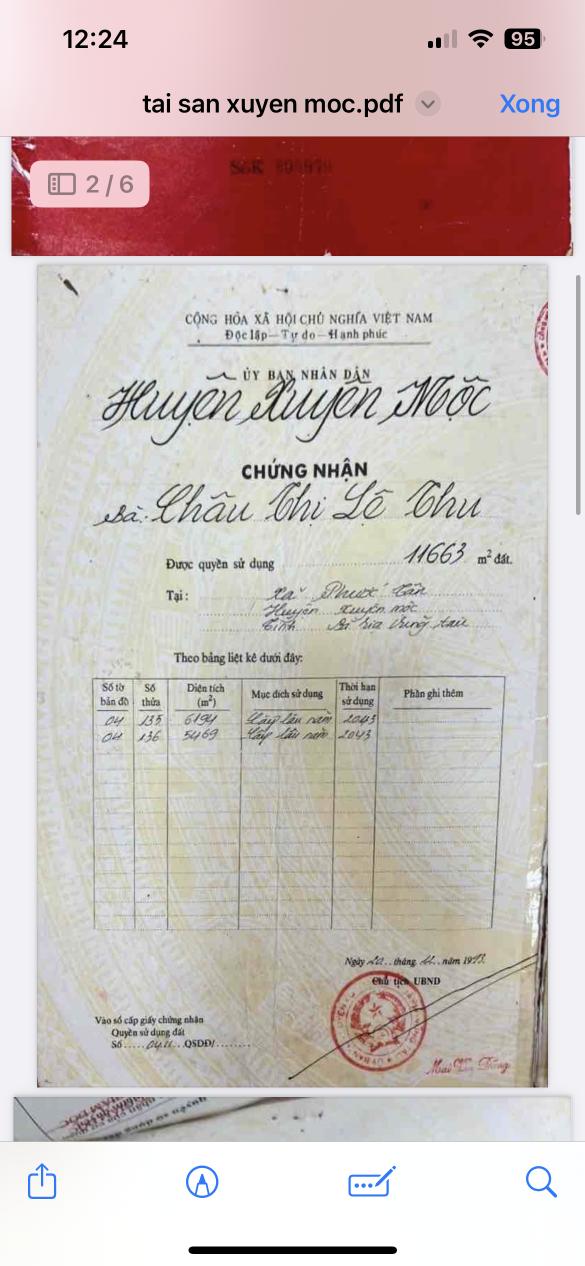 12:24
95
tai san xuyen moc.pdf
Xong
2 / 6
CỘNG HÒA XÃ HỘI CHỦ NGHĨA VIỆT NAM
Độc lập — Tự do — Hạnh phúc
ỦY BAN NHÂN DÂN
Huyện Xuyên Mộc
CHỨNG NHẬN
Bà: Châu Thị Lệ Thu
Được quyền sử dụng 11663 m² đất.
Tại : Xã Phước Tân
Huyện Xuyên mộc
Tỉnh Bà Rịa Vũng tàu
Theo bảng liệt kê dưới đây:
Số tờ bản đồ Số thửa Diện tích (m²) Mục đích sử dụng Thời hạn sử dụng Phần ghi thêm
04 135 6194 lâu năm 2043
04 136 5469 lâu năm 2043
Ngày 20 tháng 11 năm 1993
Chủ tịch UBND
Vào sổ cấp giấy chứng nhận
Quyền sử dụng đất
Số QSDĐ/